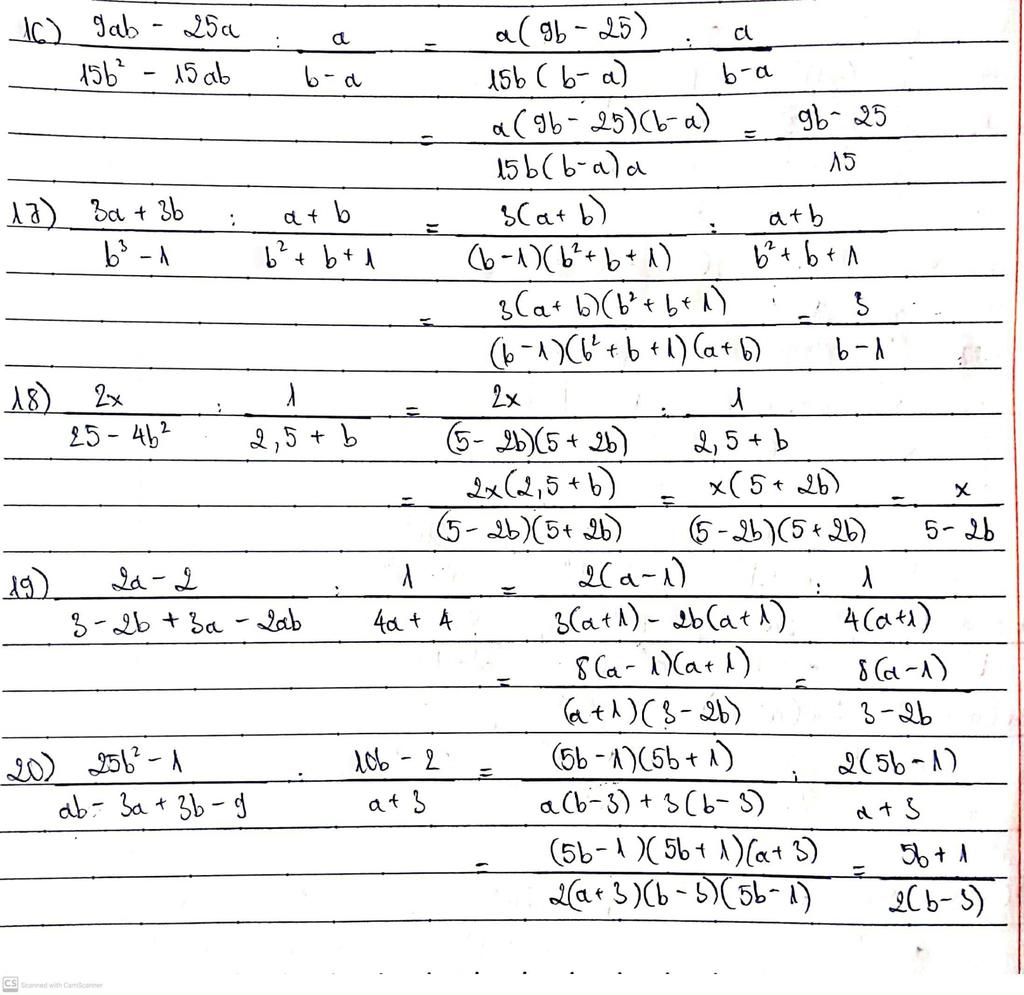 16) (9ab - 25a)/(15b² - 15ab) : a/(b-a) = a(9b-25)/(15b(b-a)) : a/(b-a)
= a(9b-25)(b-a)/(15b(b-a)a) = (9b-25)/15
17) (3a+3b)/(b³-1) : (a+b)/(b²+b+1) = 3(a+b)/((b-1)(b²+b+1)) : (a+b)/(b²+b+1)
= 3(a+b)(b²+b+1)/((b-1)(b²+b+1)(a+b)) = 3/(b-1)
18) 2x/(25-4b²) : 1/(2,5+b) = 2x/((5-2b)(5+2b)) : 1/(2,5+b)
= 2x(2,5+b)/((5-2b)(5+2b)) = x(5+2b)/((5-2b)(5+2b)) = x/(5-2b)
19) (2a-2)/(3-2b+3a-2ab) : 1/(4a+4) = 2(a-1)/(3(a+1)-2b(a+1)) : 1/(4(a+1))
= 8(a-1)(a+1)/((a+1)(3-2b)) = 8(a-1)/(3-2b)
20) (25b²-1)/(ab-3a+3b-9) : (10b-2)/(a+3) = (5b-1)(5b+1)/(a(b-3)+3(b-3)) : 2(5b-1)/(a+3)
= (5b-1)(5b+1)(a+3)/(2(a+3)(b-3)(5b-1)) = (5b+1)/(2(b-3))
CS Scanned with CamScanner